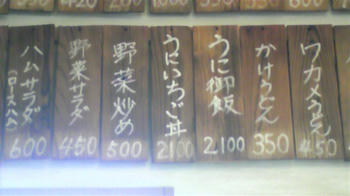 ワカメうどん
450
かけうどん
350
うに御飯
2100
うにいちご丼
2100
野菜炒め
500
野菜サラダ
450
ハムサラダ
(ロースハム)
600